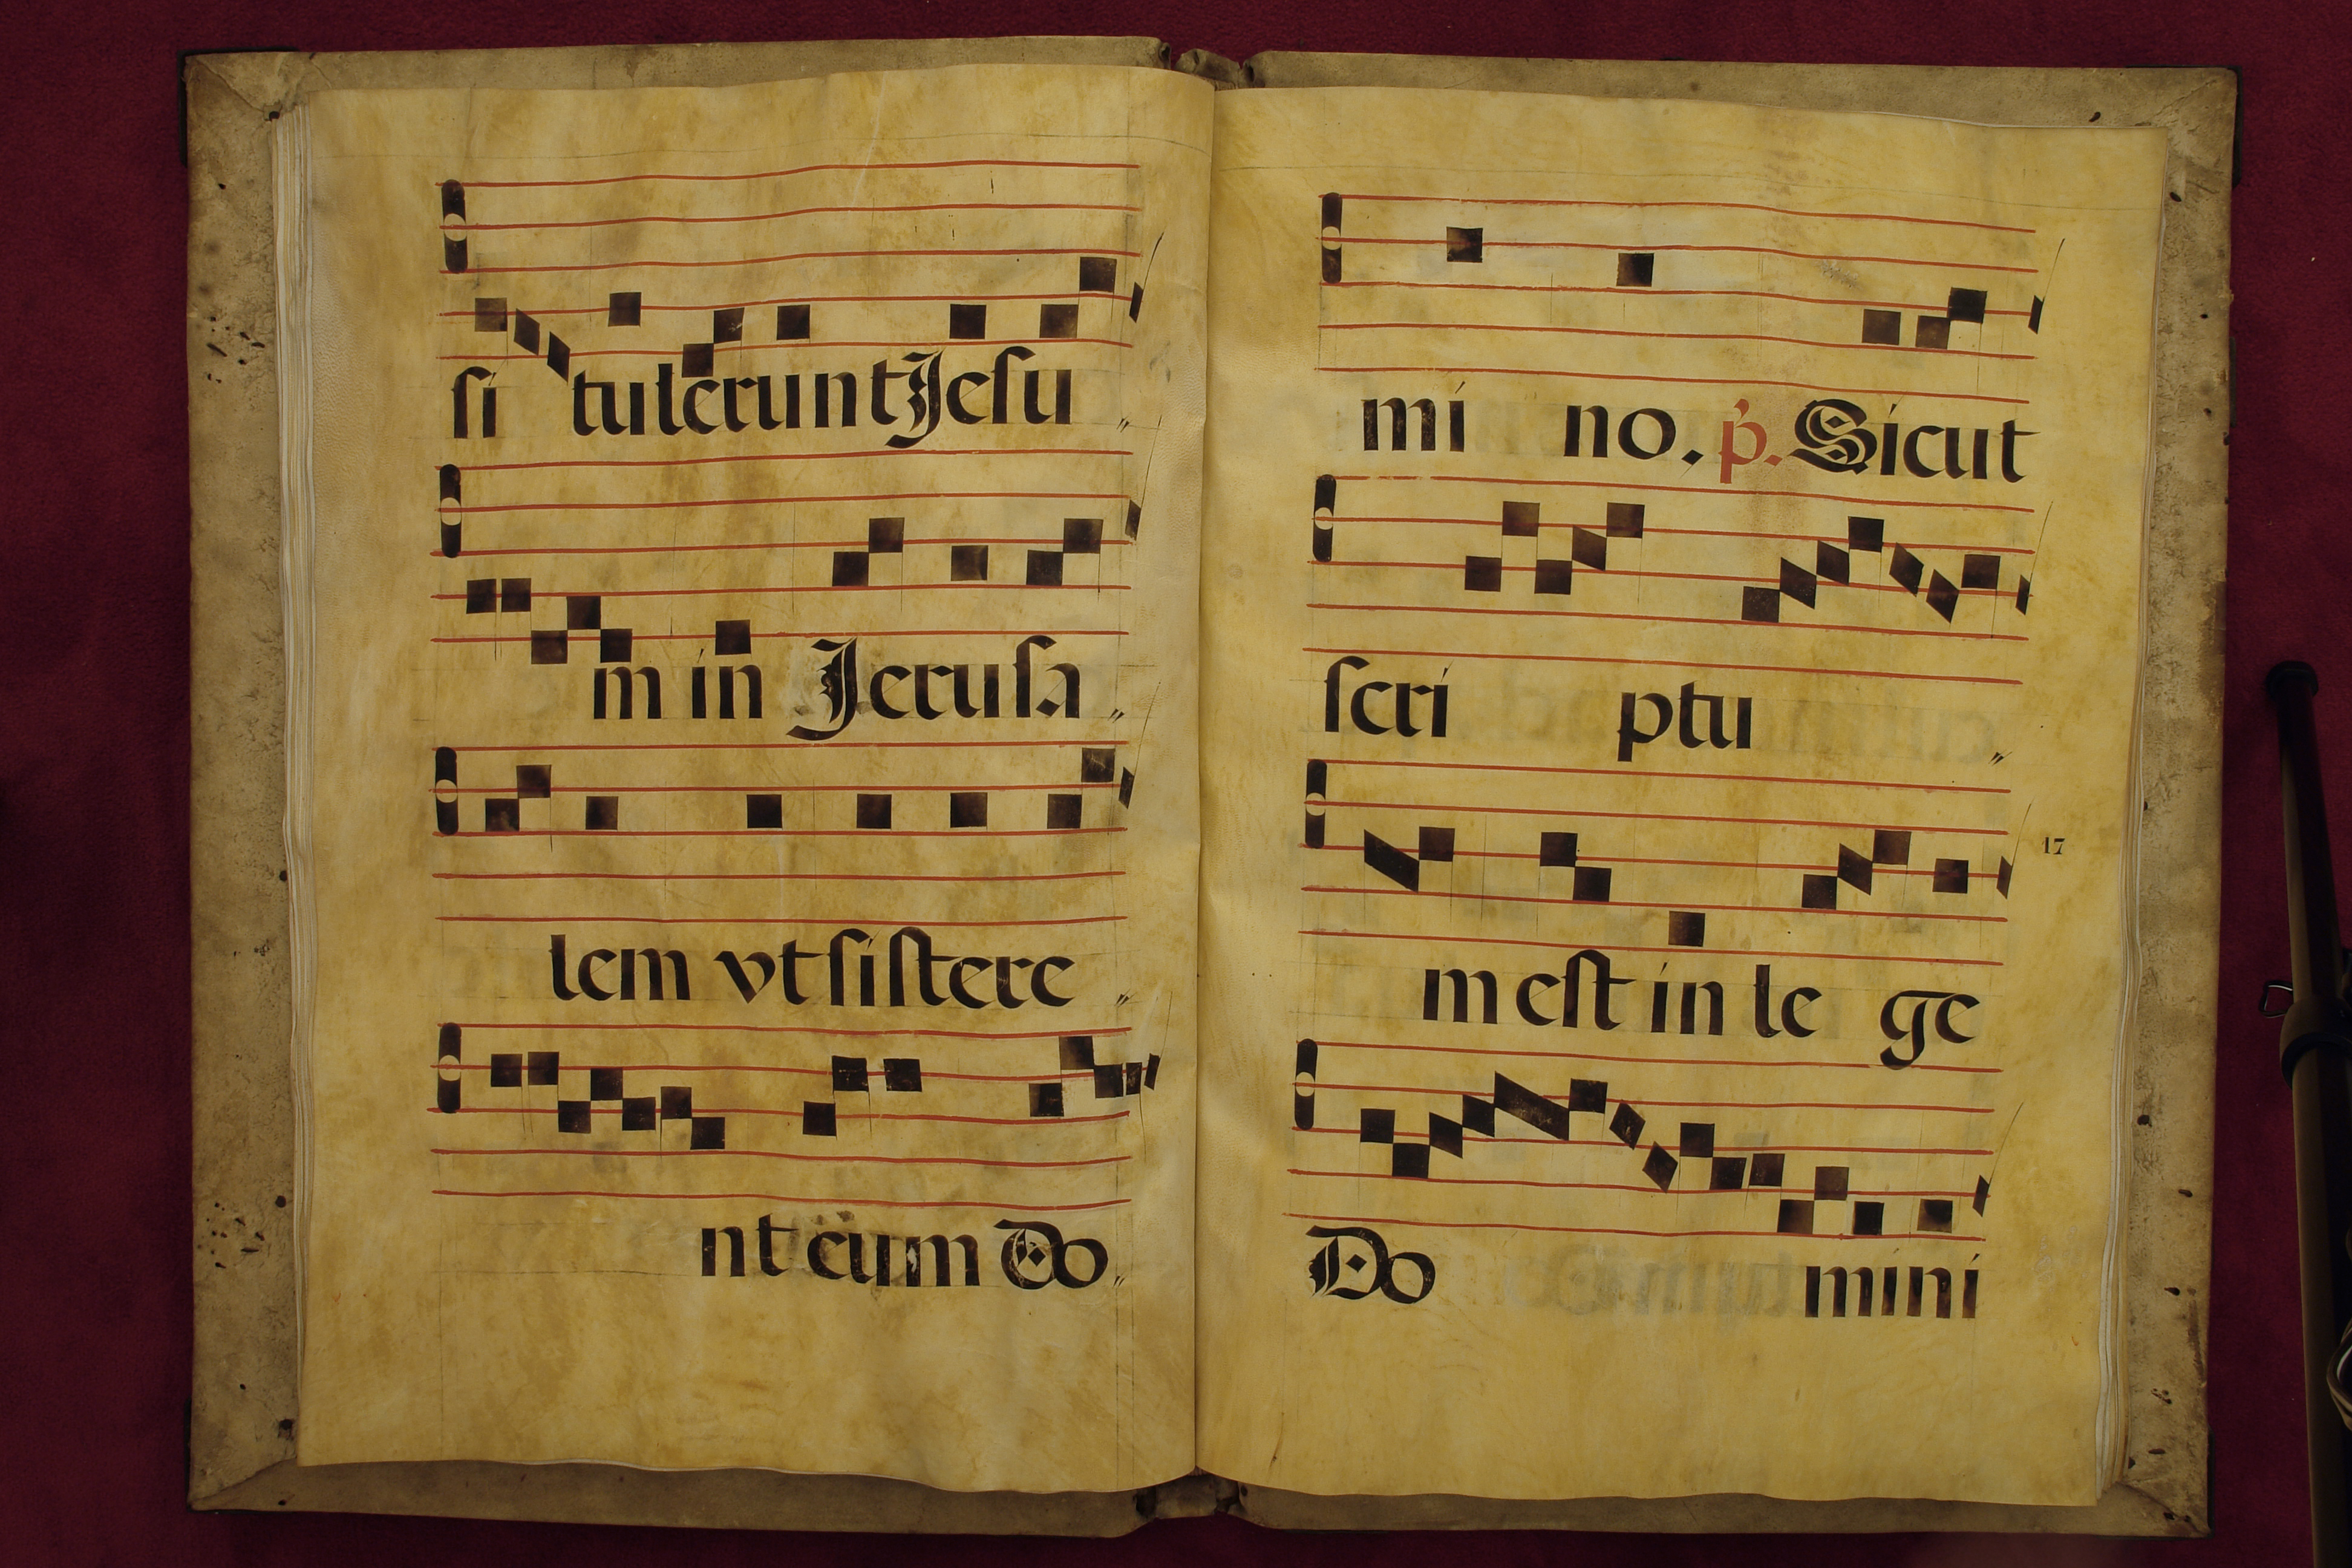 si tulerunt Jesu
m in Jerusa
lem vt sistere
nt cum Do
mi no. p. Sicut
scri ptu
17
m est in le ge
Do mini